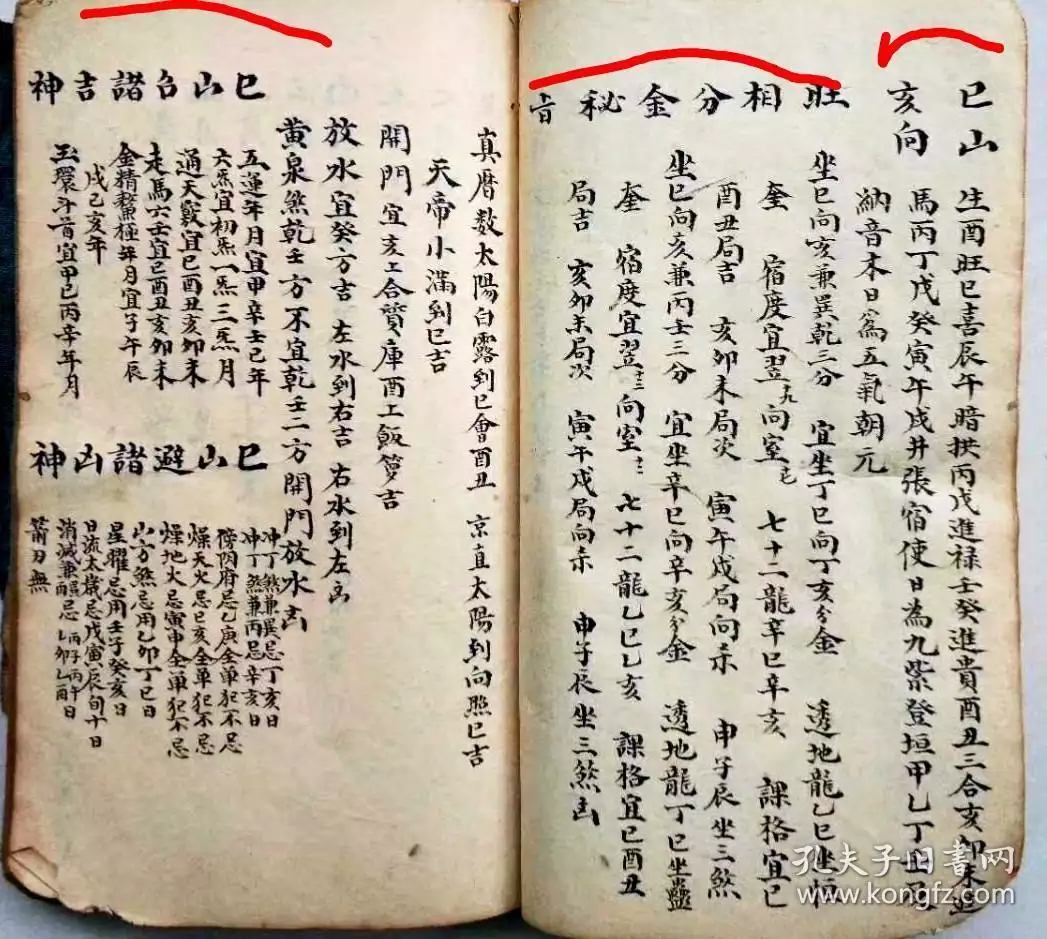 巳山
亥向
生酉旺巳喜辰午暗拱丙戊進禄壬癸進貴酉丑三合亥卯未進
馬丙丁戊癸寅午戌井張宿使日為九紫登垣甲乙丁
納音木日為五氣朝元
旺相分金秘旨
坐巳向亥兼巽乾三分 宜坐丁巳向丁亥分金 透地龍乙巳坐
奎 宿度宜翌九向室七 七十二龍辛巳辛亥 課格宜巳
酉丑局吉 亥卯未局次 寅午戌局向杀 申子辰坐三煞
坐巳向亥兼丙壬三分 宜坐辛巳向辛亥分金 透地龍丁巳坐蠱
奎 宿度宜翌十三向室十二 七十二龍乙巳乙亥 課格宜巳酉丑
局吉 亥卯未局次 寅午戌局向杀 申子辰坐三煞凶
真曆数太陽白露到巳會酉丑 京直太陽到向照巳吉
天帝小滿到巳吉
開門宜亥工合寶庫酉工飯籮吉
放水宜癸方吉 左水到右吉 右水到左凶
黄泉煞乾壬方不宜乾壬二方開門放水凶
巳山召諸吉神
五運年月宜甲辛壬己年
六炁宜初炁一炁三炁月
通天竅宜巳酉丑亥卯未
走馬六壬宜巳酉丑亥卯未
金精鰲極年月宜子午辰
戌己亥年
玉環斗首宜甲己丙辛年月
巳山避諸凶神
冲丁煞兼巽忌丁亥日
冲丁煞兼丙忌辛亥日
傍陰府忌乙庚全單犯不忌
燥天火忌巳亥全單犯不忌
燥地火忌寅申全單犯不忌
山方煞忌用乙卯丁巳日
星曜忌用壬子癸亥日
日流太歲忌戊寅辰旬十日
消滅兼忌丙子丙午乙卯乙酉日
箭刃無
孔夫子旧書网
www.kongfz.com